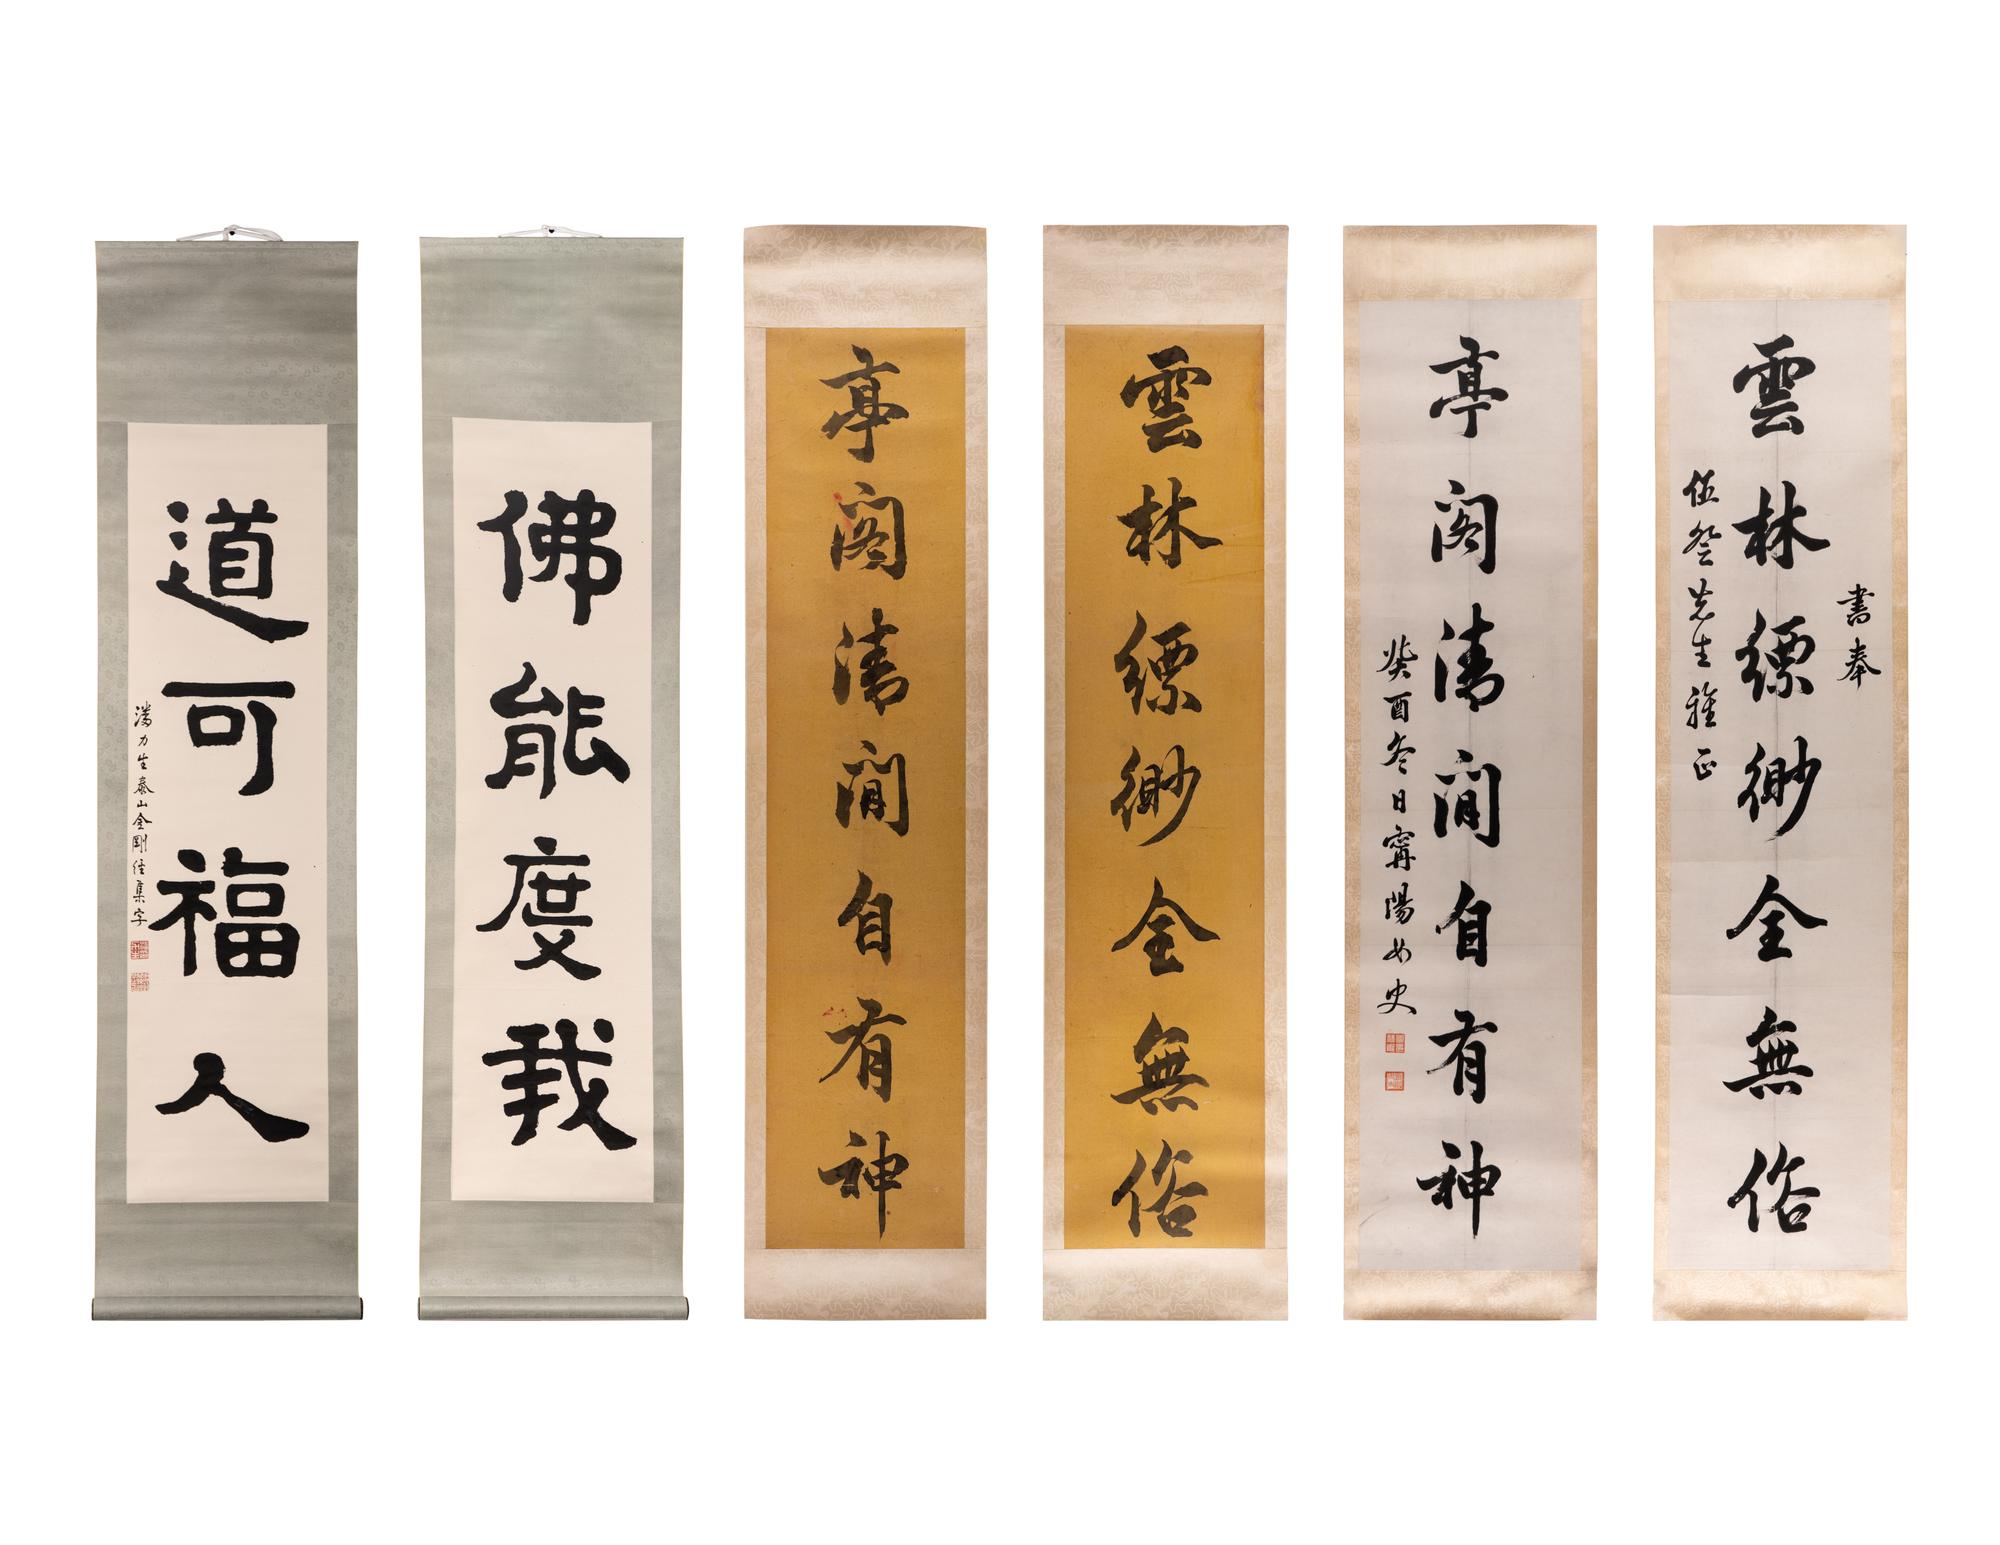 書奉
雲林縹緲全無俗
伍癸先生雅正
亭閣清閒自有神
癸酉冬日寗陽女史
雲林縹緲全無俗
亭閣清閒自有神
佛能度我
道可福人
潘力生泰山金剛經集字